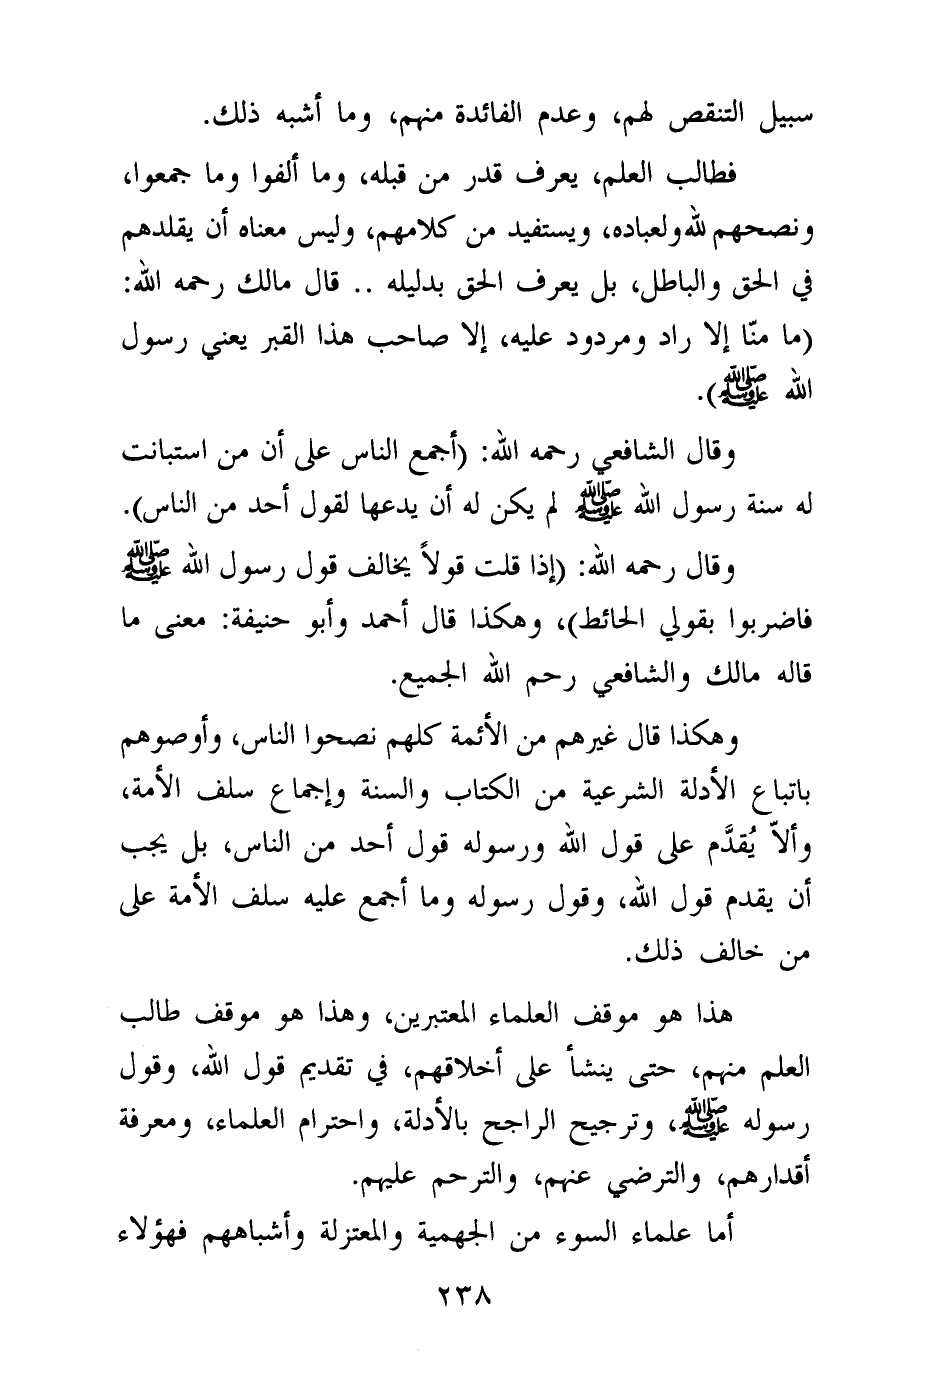 سبيل التنقص لهم، وعدم الفائدة منهم، وما أشبه ذلك.
فطالب العلم، يعرف قدر من قبله، وما ألفوا وما جمعوا،
ونصحهم لله ولعباده، ويستفيد من كلامهم، وليس معناه أن يقلدهم
في الحق والباطل، بل يعرف الحق بدليله .. قال مالك رحمه الله:
(ما منّا إلا راد ومردود عليه، إلا صاحب هذا القبر يعني رسول
الله ﷺ).
وقال الشافعي رحمه الله: (أجمع الناس على أن من استبانت
له سنة رسول الله ﷺ لم يكن له أن يدعها لقول أحد من الناس).
وقال رحمه الله: (إذا قلت قولاً يخالف قول رسول الله ﷺ
فاضربوا بقولي الحائط)، وهكذا قال أحمد وأبو حنيفة: معنى ما
قاله مالك والشافعي رحم الله الجميع.
وهكذا قال غيرهم من الأئمة كلهم نصحوا الناس، وأوصوهم
باتباع الأدلة الشرعية من الكتاب والسنة وإجماع سلف الأمة،
وألاّ يُقدَّم على قول الله ورسوله قول أحد من الناس، بل يجب
أن يقدم قول الله، وقول رسوله وما أجمع عليه سلف الأمة على
من خالف ذلك.
هذا هو موقف العلماء المعتبرين، وهذا هو موقف طالب
العلم منهم، حتى ينشأ على أخلاقهم، في تقديم قول الله، وقول
رسوله ﷺ، وترجيح الراجح بالأدلة، واحترام العلماء، ومعرفة
أقدارهم، والترضي عنهم، والترحم عليهم.
أما علماء السوء من الجهمية والمعتزلة وأشباههم فهؤلاء
٢٣٨